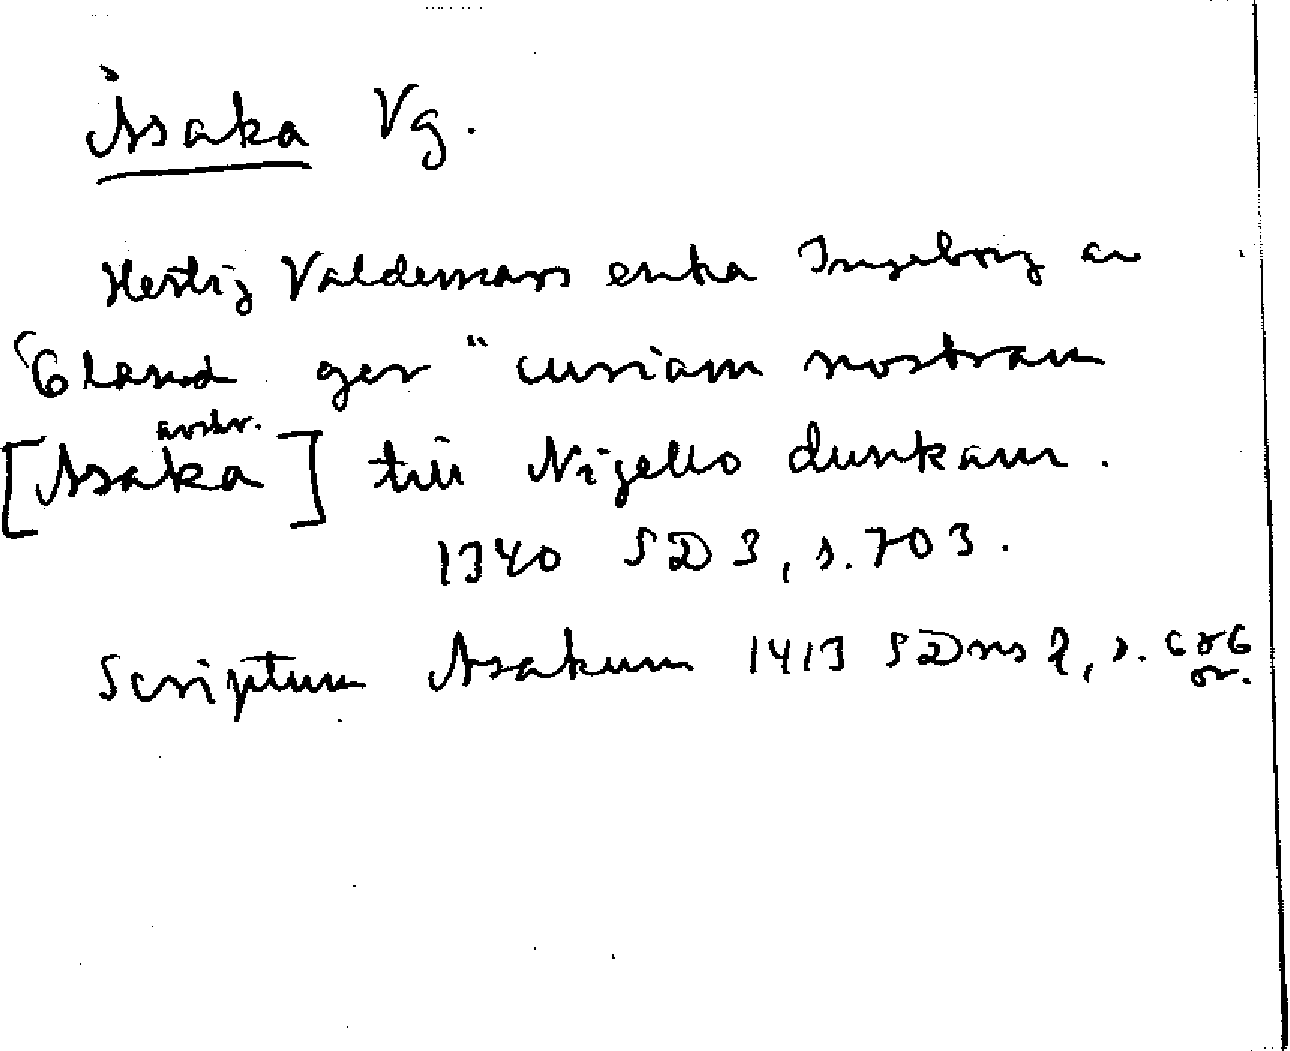 Åsaka Vg.
Hertig Valdemars enka Ingeborg av
Öland ger "curiam nostram
[Asaka avskr.] till Nigello dunkam.
1340 SD 3, s. 703.
Scriptum Asakum 1413 SDns 2, s. 686 or.